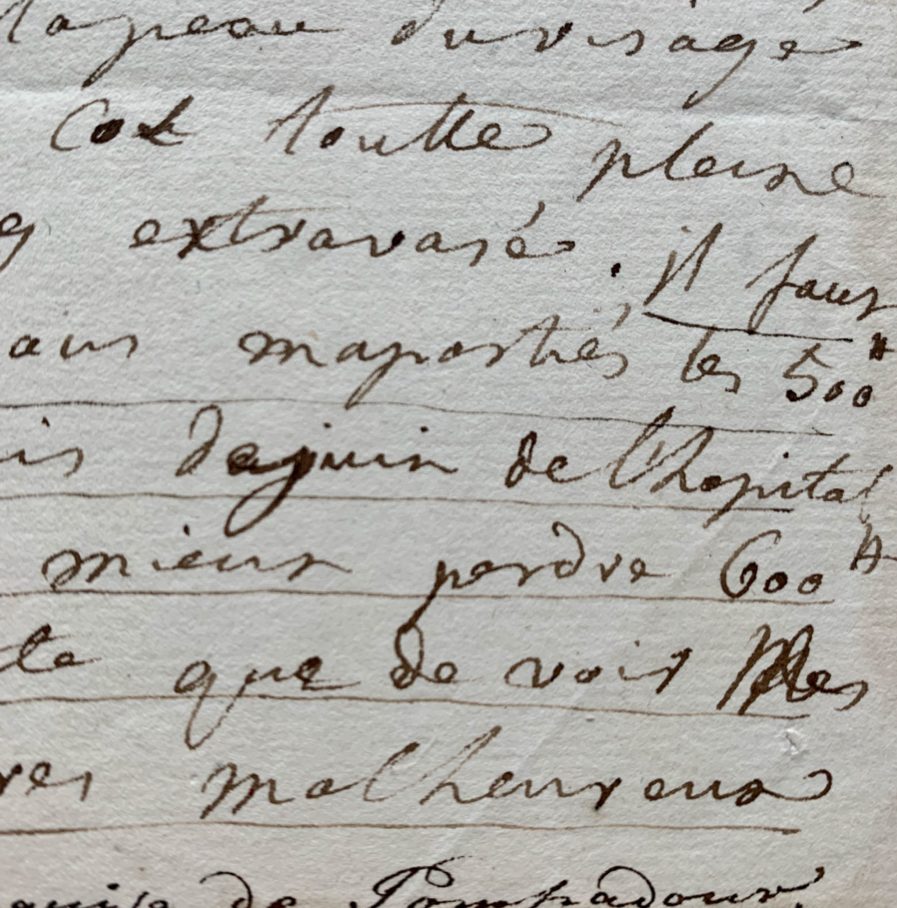 lapeau du visage
Col toutte pleine
g extravasé. il faut
aus maportiés les 500#
is dejuin de l'hopital
mieux perdre 600#
te que de voir les
res malheureux
quise de Pompadour.